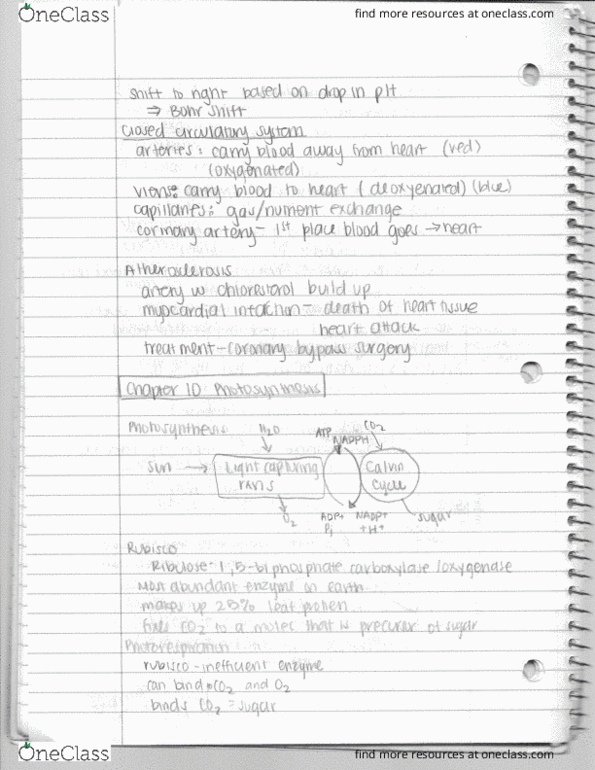 OneClass
find more resources at oneclass.com
shift to right based on drop in pH
⇒ Bohr shift
Closed circulatory system
arteries: carry blood away from heart (red)
(oxygenated)
viens: carry blood to heart (deoxyenated) (blue)
capillaries: gas/nutrient exchange
corinary artery - 1st place blood goes → heart
Atherosclerosis
artery w chloresterol build up
myocardial infarction - death of heart tissue
heart attack
treatment - coronary bypass surgery
Chapter 10 Photosynthesis
Photosynthesis
H2O
ATP
NADPH
CO2
sun → Light capturing rxns
Calvin cycle
O2
ADP+ Pi
NADP+ + H+
sugar
Rubisco
Ribulose-1,5-biphosphate carboxylase/oxygenase
Most abundant enzyme on earth
makes up 25% leaf protein
fixes CO2 to a molec that is precurser of sugar
Photorespiration
rubisco - inefficient enzyme
can bind CO2 and O2
binds CO2 = sugar
OneClass
find more resources at oneclass.com